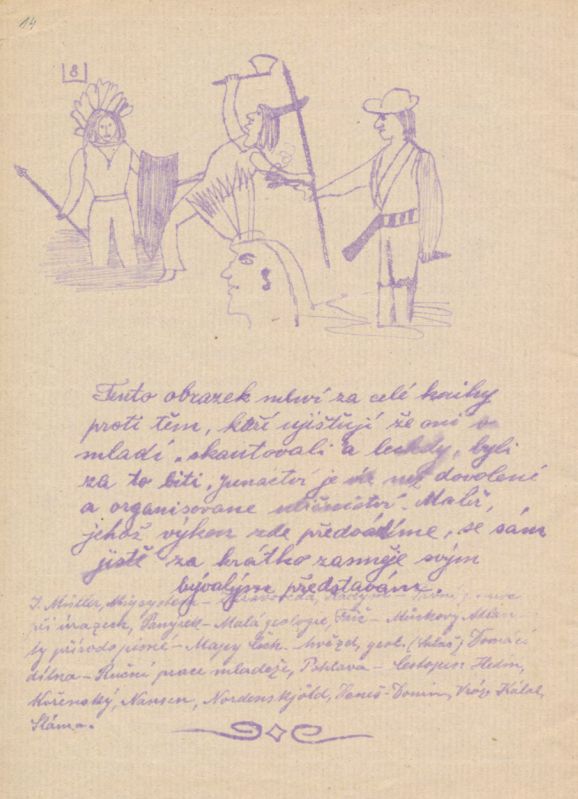 14
8
Tento obrazek mluví za celé knihy
proti těm, kteří ujišťují že oni v
mladí „skautovali a leckdy, byli
za to biti, Junáctví je dovolené
a organisované uličnictví." Malíř,
jehož výkon zde předvádíme, se sám
jistě za krátko zasměje svým
bývalým představám.
J. Müller,
při úrazech, Panýrek – Malá geologie,
sy přírodopisné – Mapy Čech. hvězd, geol. Domácí
dílna – Ruční práce mladeže, Pohlava – Cestopisy Hedin,
Kořenský, Nansen, Nordenskjöld, Daneš-Domin, Vráz, Kálal,
Sláma.